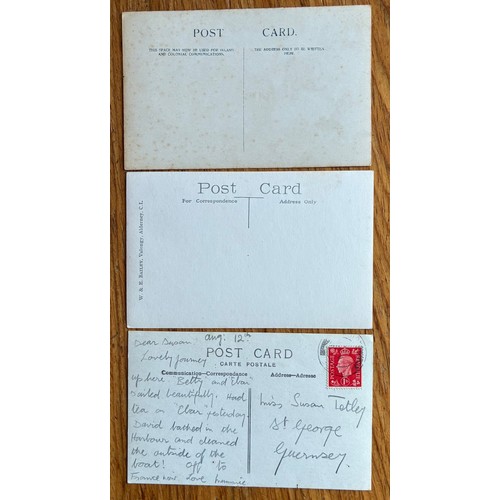 POST CARD.
THIS SPACE MAY NOW BE USED FOR INLAND
AND COLONIAL COMMUNICATIONS.
THE ADDRESS ONLY TO BE WRITTEN
HERE.
Post Card
For Correspondence
Address Only
W. & H. Valongy, Alderney, C.I.
Aug: 12th
Dear Susan
Lovely journey
POST CARD
CARTE POSTALE
Communication—Correspondence
Address—Adresse
up here. "Betty and Clair"
sailed beautifully. Had
tea on "Clair" yesterday.
David bathed in the
Harbour and cleaned
the outside of the
boat! Off to
France now. Love
Miss Susan Tetley
St George
Guernsey.
POSTAGE
REVENUE